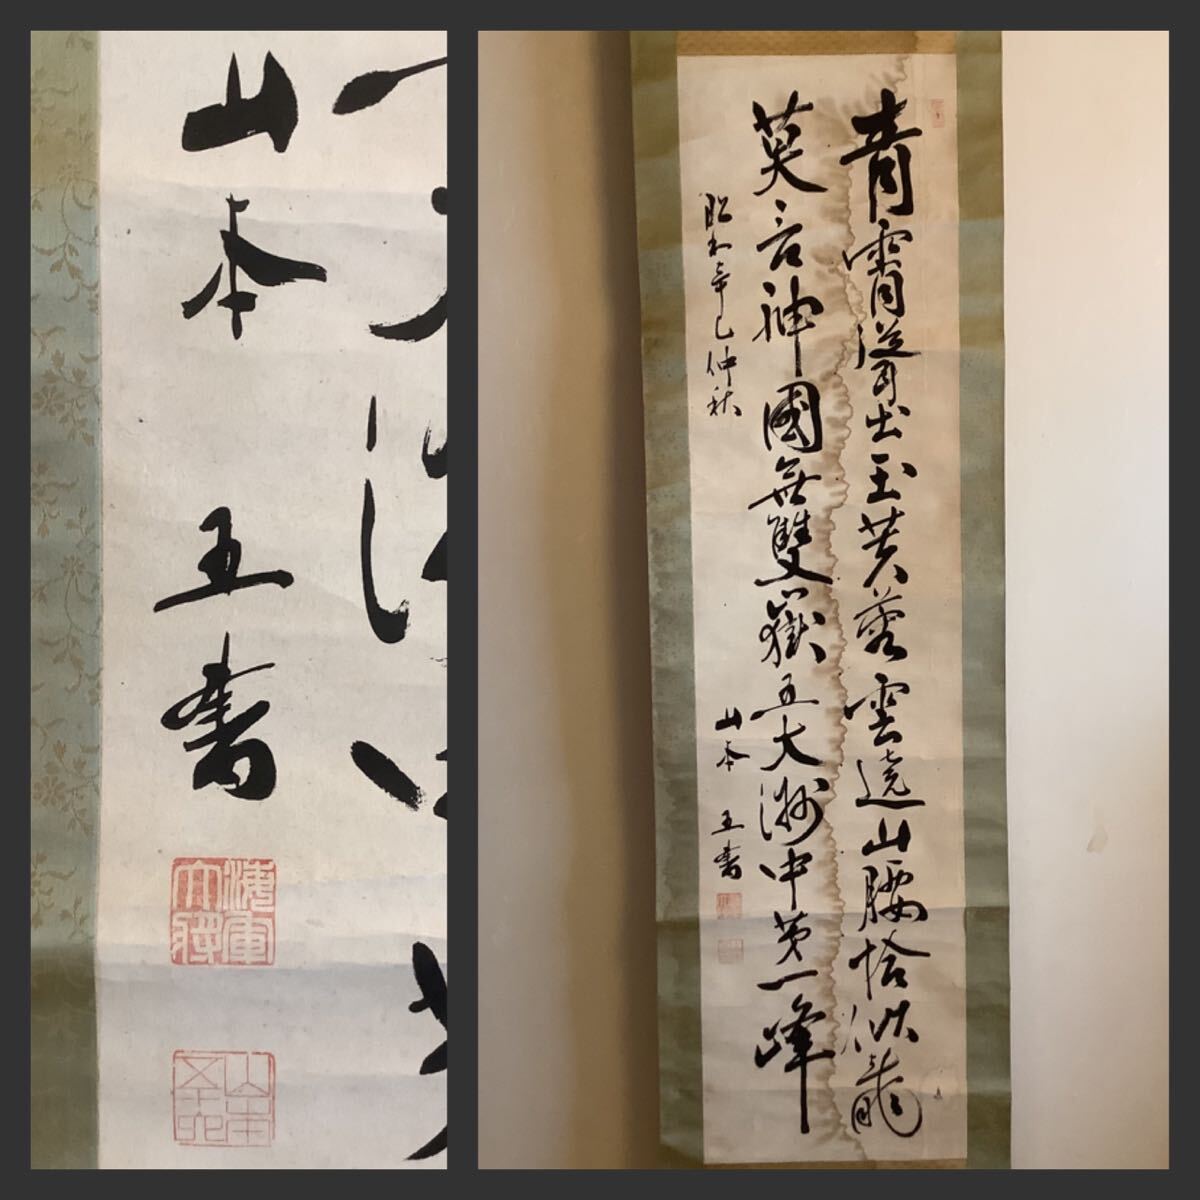 山本
五書
海軍大将
青霄聳出玉芙蓉雲遶山腰恰似龍
莫言神國無雙嶽五大洲中第一峰
昭和辛巳仲秋
山本
五書